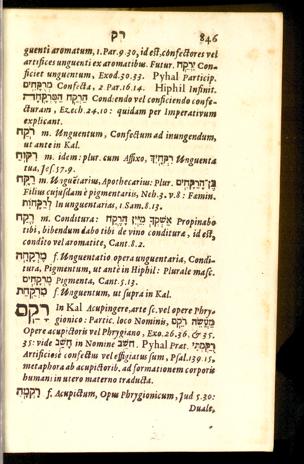 רק 846
guenti aromatum, 1. Par. 9. 30, id est, confectores vel
artifices unguenti ex aromatibus. Futur. יִרְקַח Con-
ficiet unguentum, Exod. 30. 33. Pyhal Particip.
מְרֻקָּחִים Confecta, 2 Par. 16. 14. Hiphil Infinit.
הַרְקַח הַמֶּרְקָחָה Condiendo vel conficiendo confe-
cturam, Ezech. 24. 10: quidam per Imperativum
explicant.
רֹקַח m. Unguentum, Confectum ad inungendum,
ut ante in Kal.
רִקּוּחַ m. idem: plur. cum Affixo, רִקֻּחַיִךְ Unguenta
tua, Jes. 57. 9.
רַקָּח m. Unguentarius, Apothecarius: Plur. בֶּן־הָרַקָּחִים
Filius cujusdam è pigmentariis, Neh. 3. v. 8: Famin.
לְרַקָּחוֹת In unguentarias, 1 Sam. 8. 13.
רֶקַח m. Conditura: אַשְׁקְךָ מִיַּיִן הָרֶקַח Propinabo
tibi, bibendum dabo tibi de vino conditura, id est,
condito vel aromatite, Cant. 8. 2.
מֶרְקָחָה f. Unguentatio opera unguentaria, Condi-
tura, Pigmentum, ut ante in Hiphil: Plurale masc.
מֶרְקָחִים Pigmenta, Cant. 5. 13.
מִרְקַחַת f. Unguentum, ut supra in Kal.
רָקַם In Kal Acupingere, arte sc. vel opere Phry-
gionico: Partic. loco Nominis, מַעֲשֵׂה רֹקֵם
Opere acupictoris vel Phrygiano, Exo. 26. 36, & 35.
35: vide חֹשֵׁב in Nomine חֵשֶׁב. Pyhal Prat. רֻקַּמְתִּי
Artificiosè confectus vel effigiatus sum, Psal. 139. 15,
metaphora ab acupictorib. ad formationem corporis
humani in utero materno traducta.
רִקְמָה f. Acupictum, Opus Phrygionicum, Jud 5. 30:
Duale,